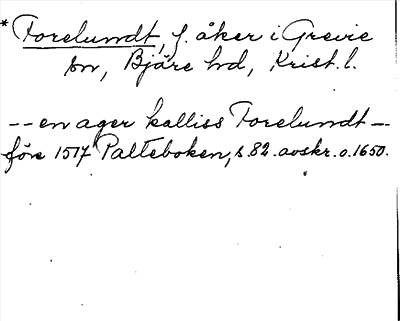 * Forelundt, f. åker i Grevie
sn, Bjäre hd, Krist. l.
-- en ager kalliss Forelundt --
före 1517 Palteboken, s. 82. avskr. o. 1650.